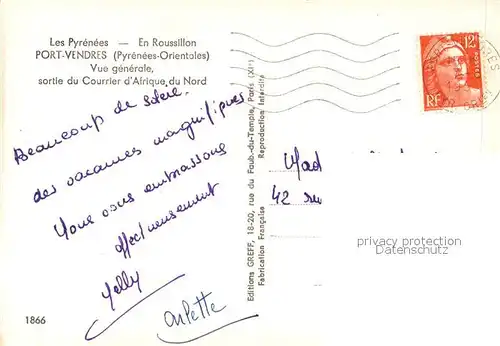 Les Pyrénées — En Roussillon
PORT-VENDRES (Pyrénées-Orientales)
Vue générale,
sortie du Courrier d'Afrique du Nord
Beaucoup de soleil.
des vacances magnifiques
Nous vous embrassons
affectueusement
Nelly
Arlette
1866
Editions GREFF, 18-20, rue du Faub.-du-Temple, Paris (XIe)
Fabrication Française Reproduction Interdite
12F
POSTES
RF
Mad
42 ru
privacy protection
Datenschutz